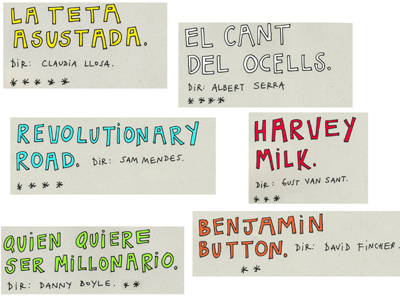 LA TETA
ASUSTADA.
DIR: CLAUDIA LLOSA.
EL CANT
DEL OCELLS.
DIR: ALBERT SERRA
REVOLUTIONARY
ROAD. DIR: SAM MENDES.
HARVEY
MILK.
DIR: GUST VAN SANT.
QUIEN QUIERE
SER MILLONARIO.
DIR: DANNY BOYLE.
BENJAMIN
BUTTON. DIR: DAVID FINCHER.